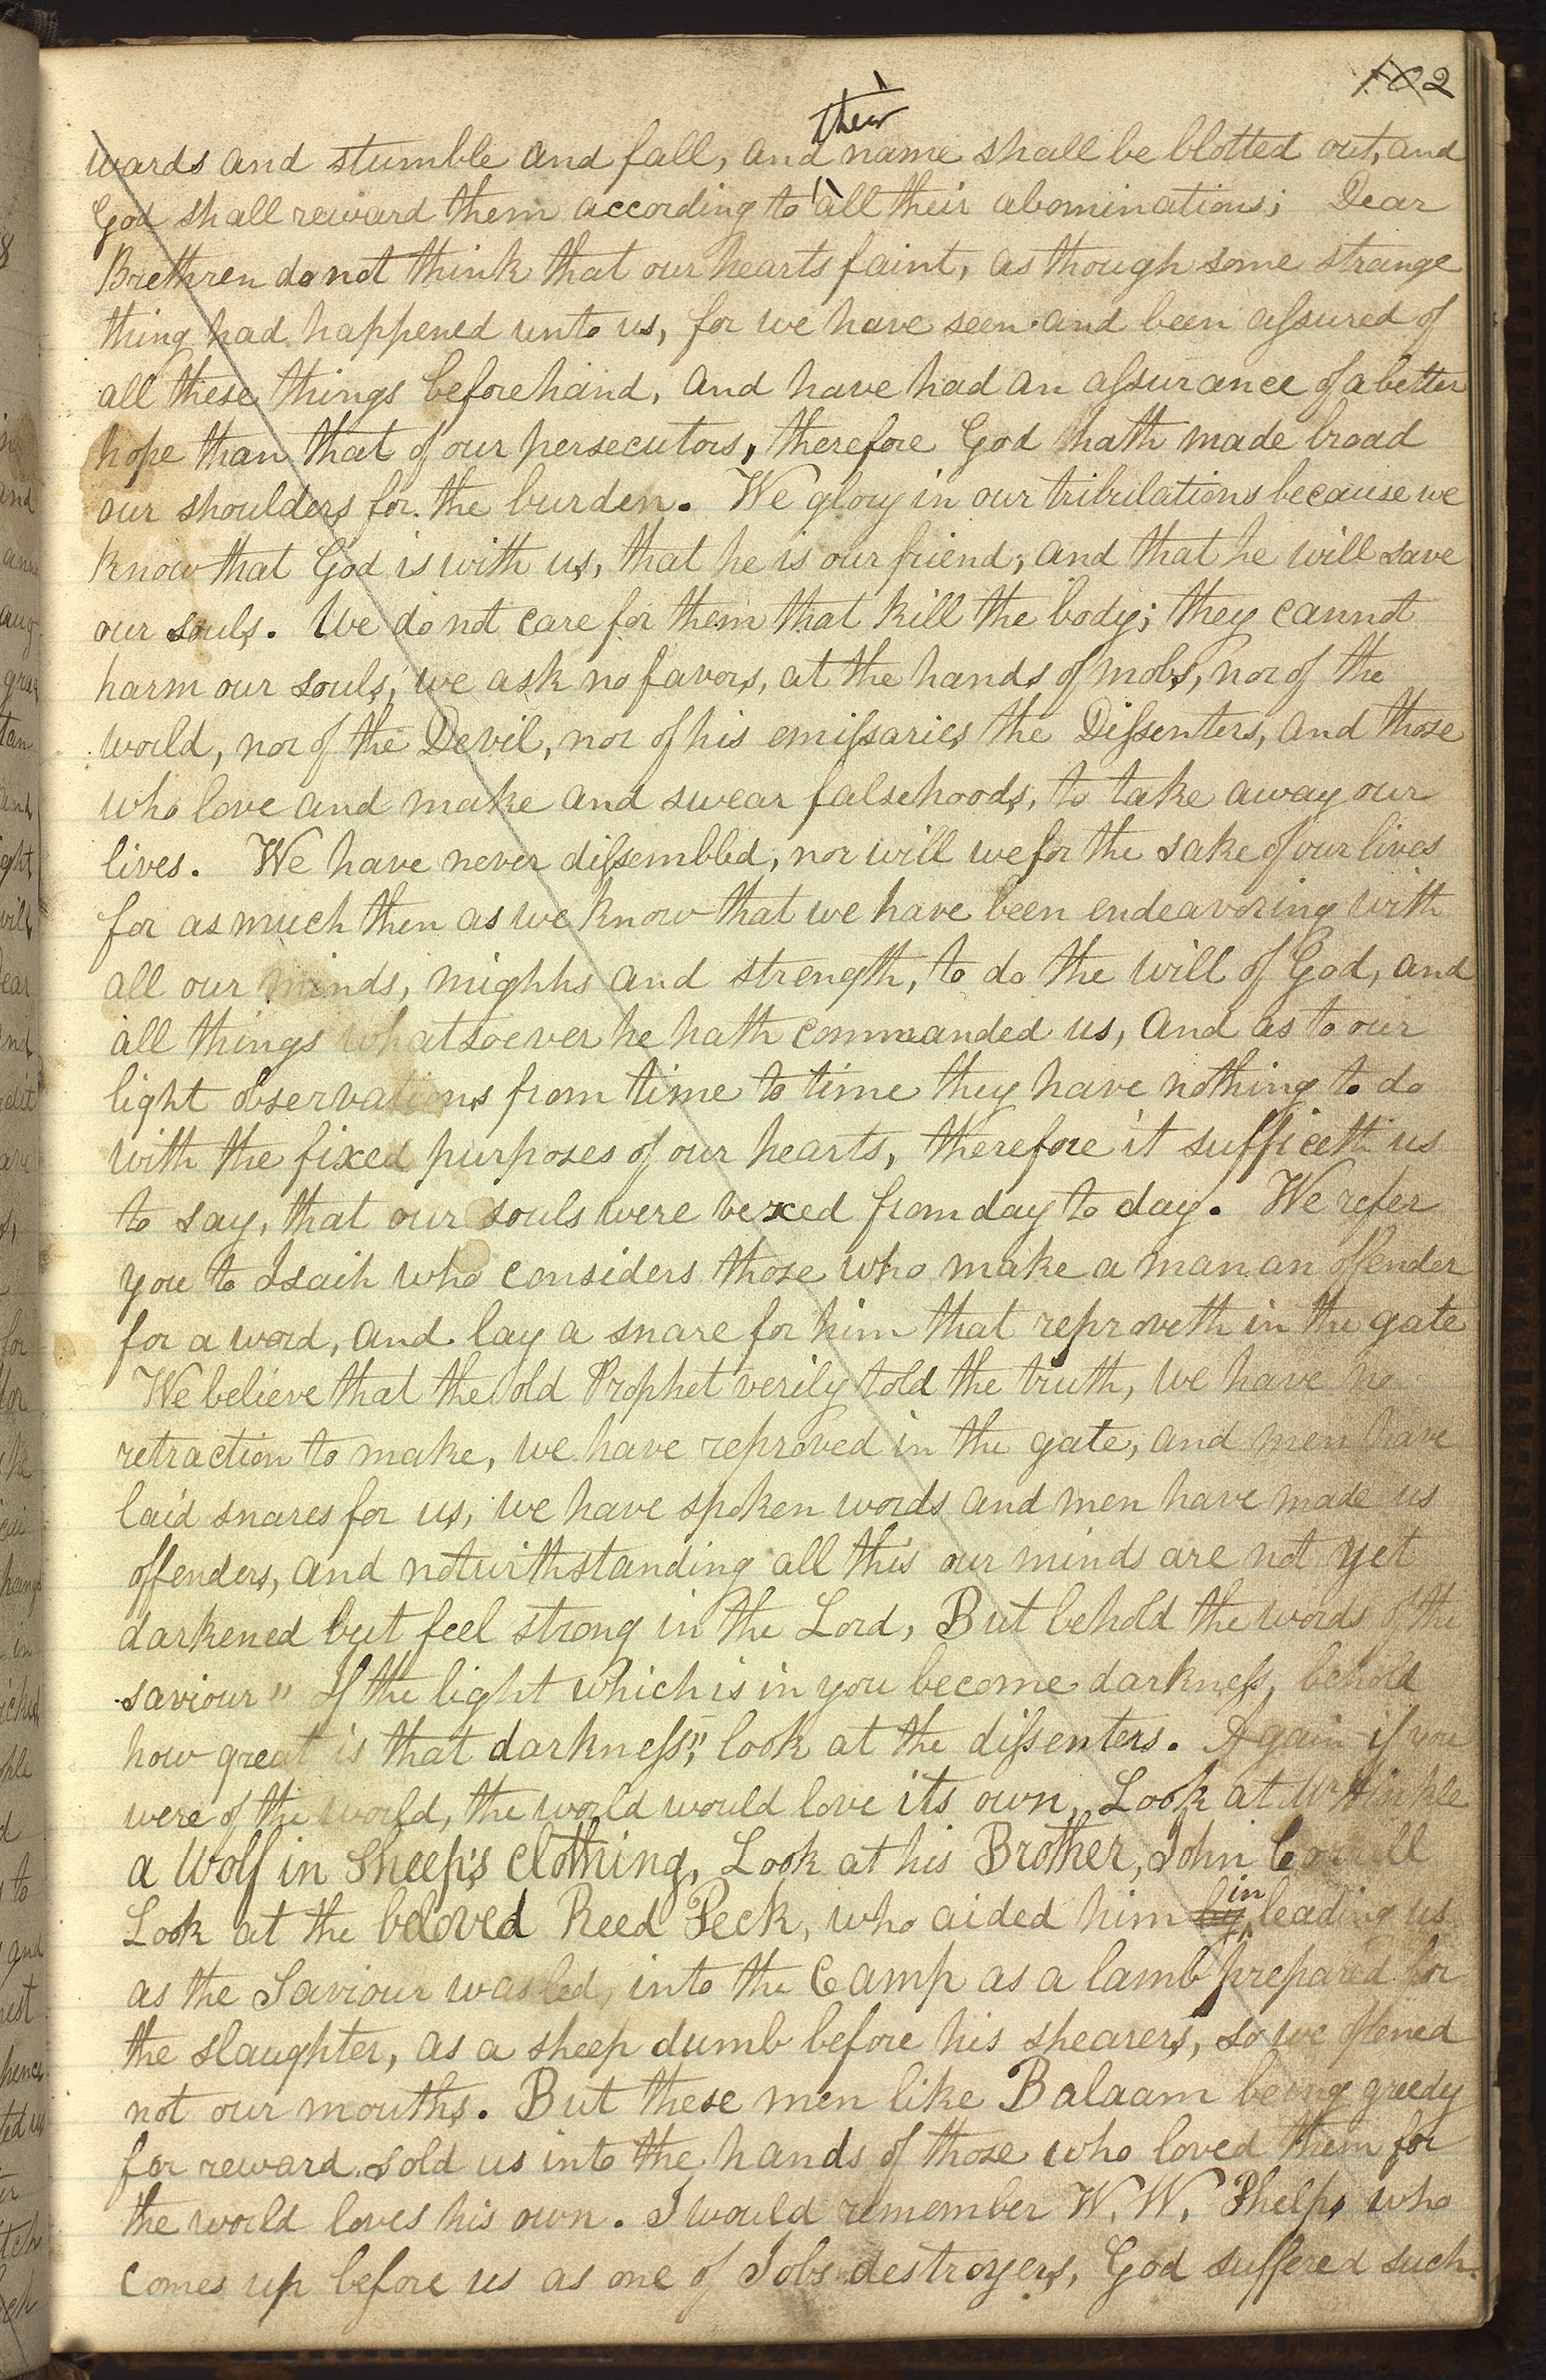 102
wards and stumble and fall, and their name shall be blotted out, and
God shall reward them according to all their abominations; Dear
Brethren do not think that our hearts faint, as though some strange
thing had happened unto us, for we have seen and been assured of
all these things beforehand, and have had an assurance of a better
hope than that of our persecutors, therefore God hath made broad
our shoulders for the burden. We glory in our tribulations because we
know that God is with us, that he is our friend, and that he will save
our souls. We do not care for them that kill the body; they cannot
harm our souls, we ask no favors, at the hands of mobs, nor of the
world, nor of the Devil, nor of his emissaries the Dissenters, and those
who love and make and swear falsehoods, to take away our
lives. We have never dissembled, nor will we for the sake of our lives
for as much then as we know that we have been endeavoring with
all our minds, mighhs and strength, to do the will of God, and
all things whatsoever he hath commanded us, and as to our
light observations from time to time they have nothing to do
with the fixed purposes of our hearts, therefore it sufficeth us
to say, that our souls were vexed from day to day. We refer
you to Isaih who considers those who make a man an offender
for a word, and lay a snare for him that reproveth in the gate
We believe that the old Prophet verily told the truth, we have no
retraction to make, we have reproved in the gate, and men have
laid snares for us, we have spoken words and men have made us
offenders, and notwithstanding all this our minds are not yet
darkened but feel strong in the Lord, But behold the words of the
saviour " If the light which is in you become darkness, behold
how great is that darkness", look at the dissenters. Again if you
were of the world, the world would love its own, Look at Mr Hinkle
a Wolf in Sheep's clothing, Look at his Brother, John Corrill
Look at the beloved Reed Peck, who aided him by in leading us
as the Saviour was led, into the Camp as a lamb prepared for
the slaughter, as a sheep dumb before his shearers, so we opened
not our mouths. But these men like Balaam being greedy
for reward sold us into the hands of those who loved them for
the world loves his own. I would remember W. W. Phelps who
comes up before us as one of Jobs destroyers, God suffered such